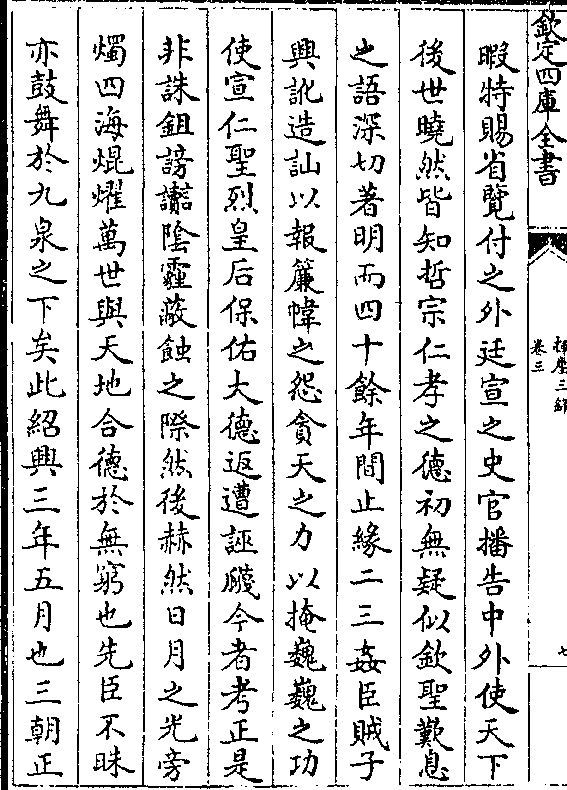 欽定四庫全書
揮麈三錄
卷三
七
暇特賜省覽付之外廷宣之史官播告中外使天下
後世曉然皆知哲宗仁孝之德初無疑似欽聖歎息
之語深切著明而四十餘年間止緣二三姦臣賊子
興訛造訕以報簾幃之怨貪天之力以掩巍巍之功
使宣仁聖烈皇后保佑大德返遭誣衊今者考正是
非誅鉏謗讟陰霾蔽蝕之際然後赫然日月之光旁
燭四海焜燿萬世與天地合德於無窮也先臣不昧
亦鼓舞於九泉之下矣此紹興三年五月也三朝正